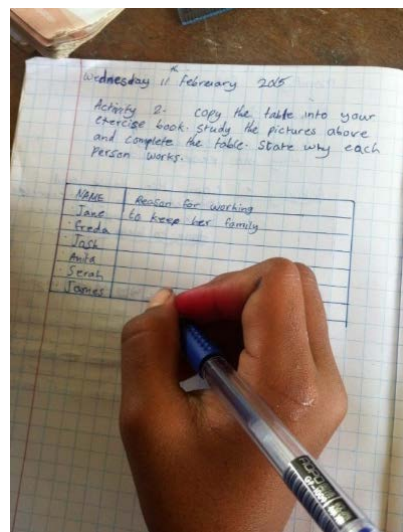 Wednesday 11 february 2015
Activity 2. copy the table into your
exercise book. study the pictures above
and complete the table. State why each
Person works.
NAME Reason for working
Jane to keep her family
Freda
Josh
Anita
Serah
James